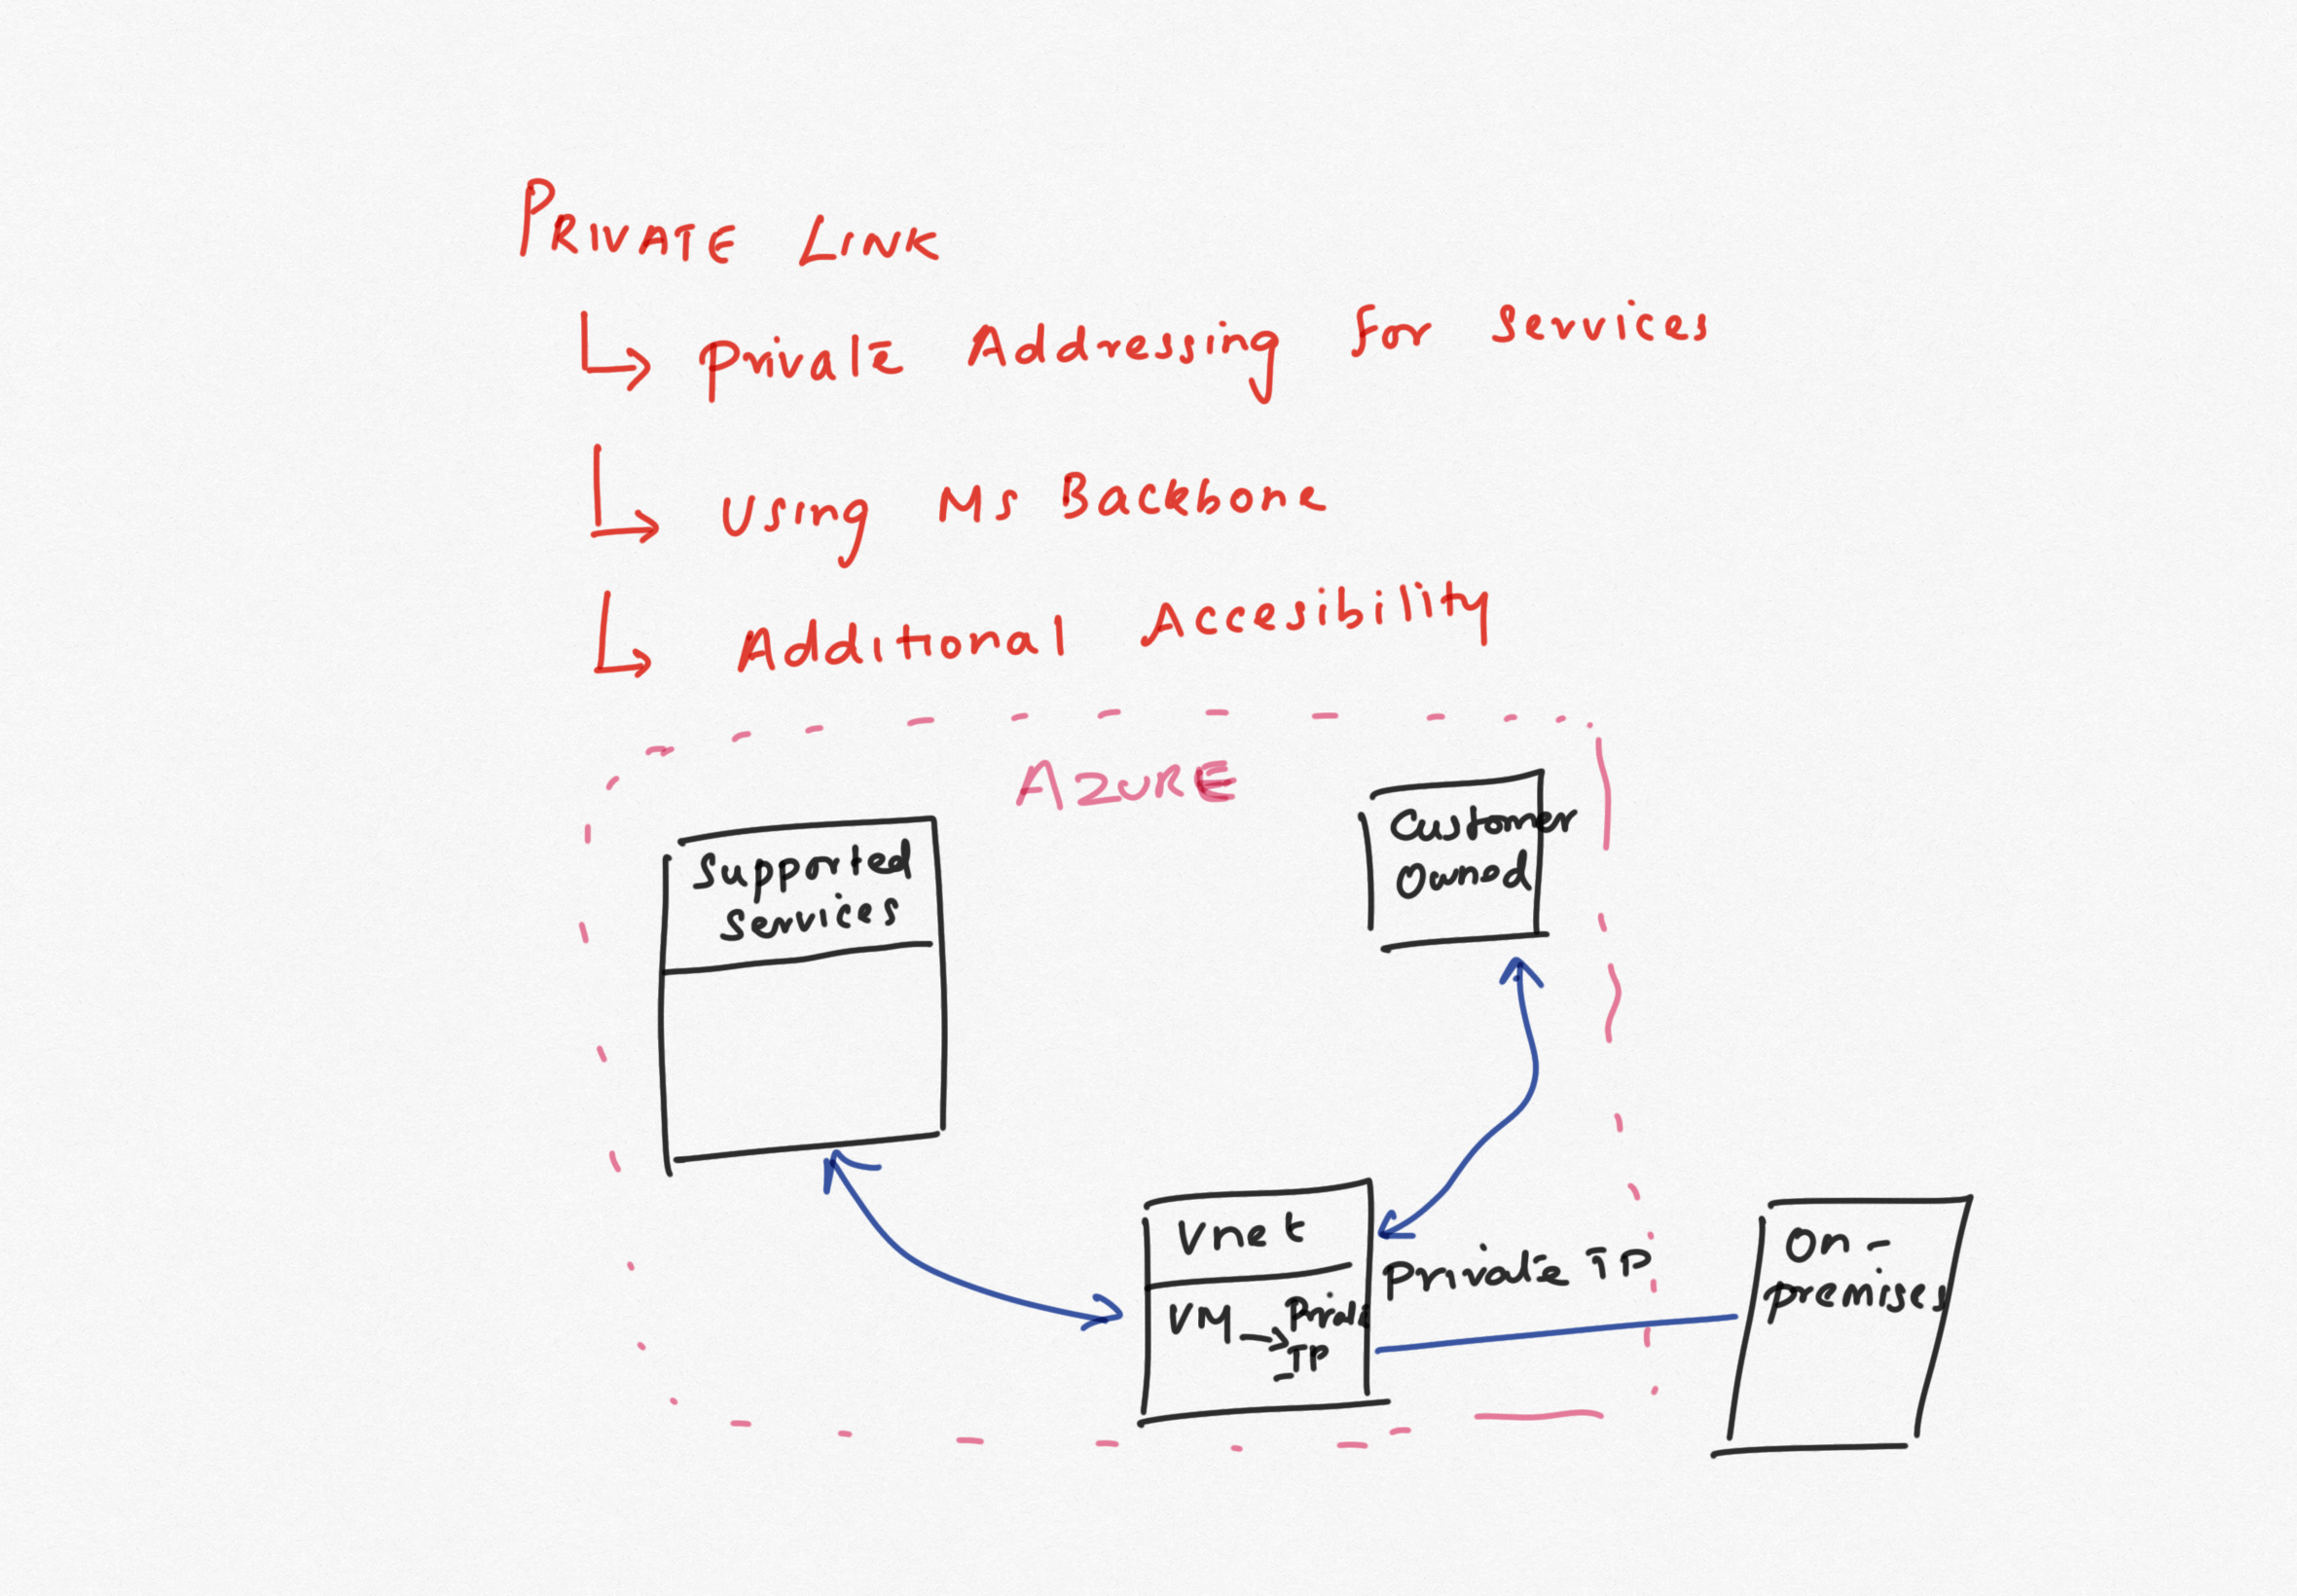 PRIVATE LINK
Private Addressing for services
Using Ms Backbone
Additional Accesibility
AZURE
Supported
Services
Customer
Owned
Vnet
VM → Private
IP
Private IP
On-
premises